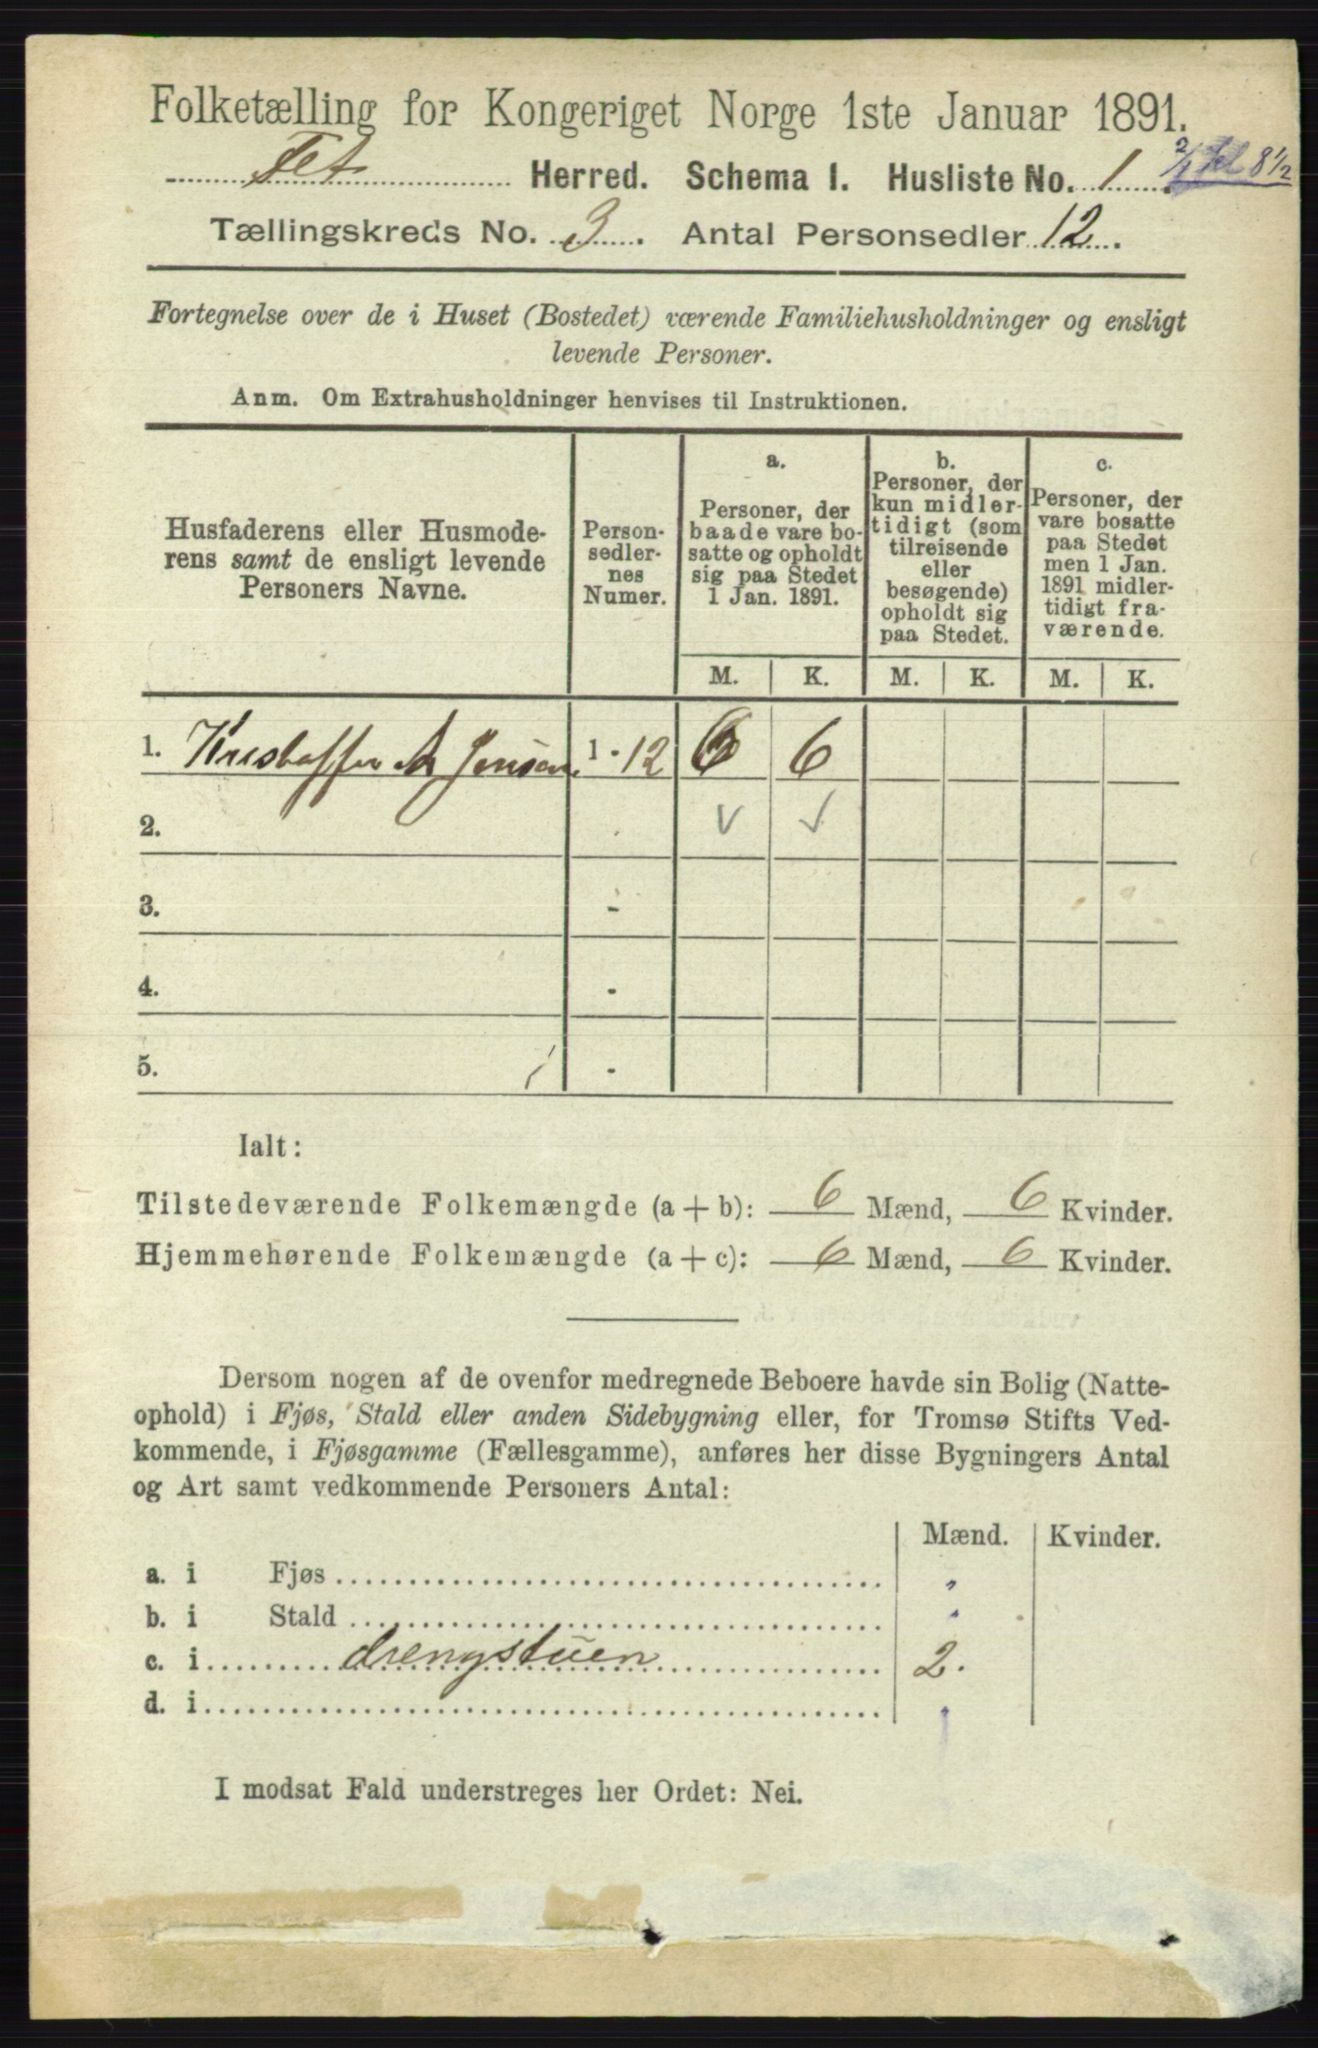 Folketælling for Kongeriget Norge 1ste Januar 1891.
Fet Herred. Schema I. Husliste No. 1 2/1 Kl 8 1/2
Tællingskreds No. 3. Antal Personsedler 12.
Fortegnelse over de i Huset (Bostedet) værende Familiehusholdninger og ensligt
levende Personer.
Anm. Om Extrahusholdninger henvises til Instruktionen.
Husfaderens eller Husmode-
rens samt de ensligt levende
Personers Navne.
Person-
sedler-
nes
Numer.
a.
Personer, der
baade vare bo-
satte og opholdt
sig paa Stedet
1 Jan. 1891.
b.
Personer, der
kun midler-
tidigt (som
tilreisende
eller
besøgende)
opholdt sig
paa Stedet.
c.
Personer, der
vare bosatte
paa Stedet
men 1 Jan.
1891 midler-
tidigt fra-
værende.
M. K. M. K. M. K.
1. Kristoffer A Jensen 1 - 12 6 6
2.
3. -
4. -
5. -
Ialt:
Tilstedeværende Folkemængde (a + b): 6 Mænd, 6 Kvinder.
Hjemmehørende Folkemængde (a + c): 6 Mænd, 6 Kvinder.
Dersom nogen af de ovenfor medregnede Beboere havde sin Bolig (Natte-
ophold) i Fjøs, Stald eller anden Sidebygning eller, for Tromsø Stifts Ved-
kommende, i Fjøsgamme (Fællesgamme), anføres her disse Bygningers Antal
og Art samt vedkommende Personers Antal:
Mænd. Kvinder.
a. i Fjøs "
b. i Stald "
c. i drengstuen 2.
d. i
I modsat Fald understreges her Ordet: Nei.